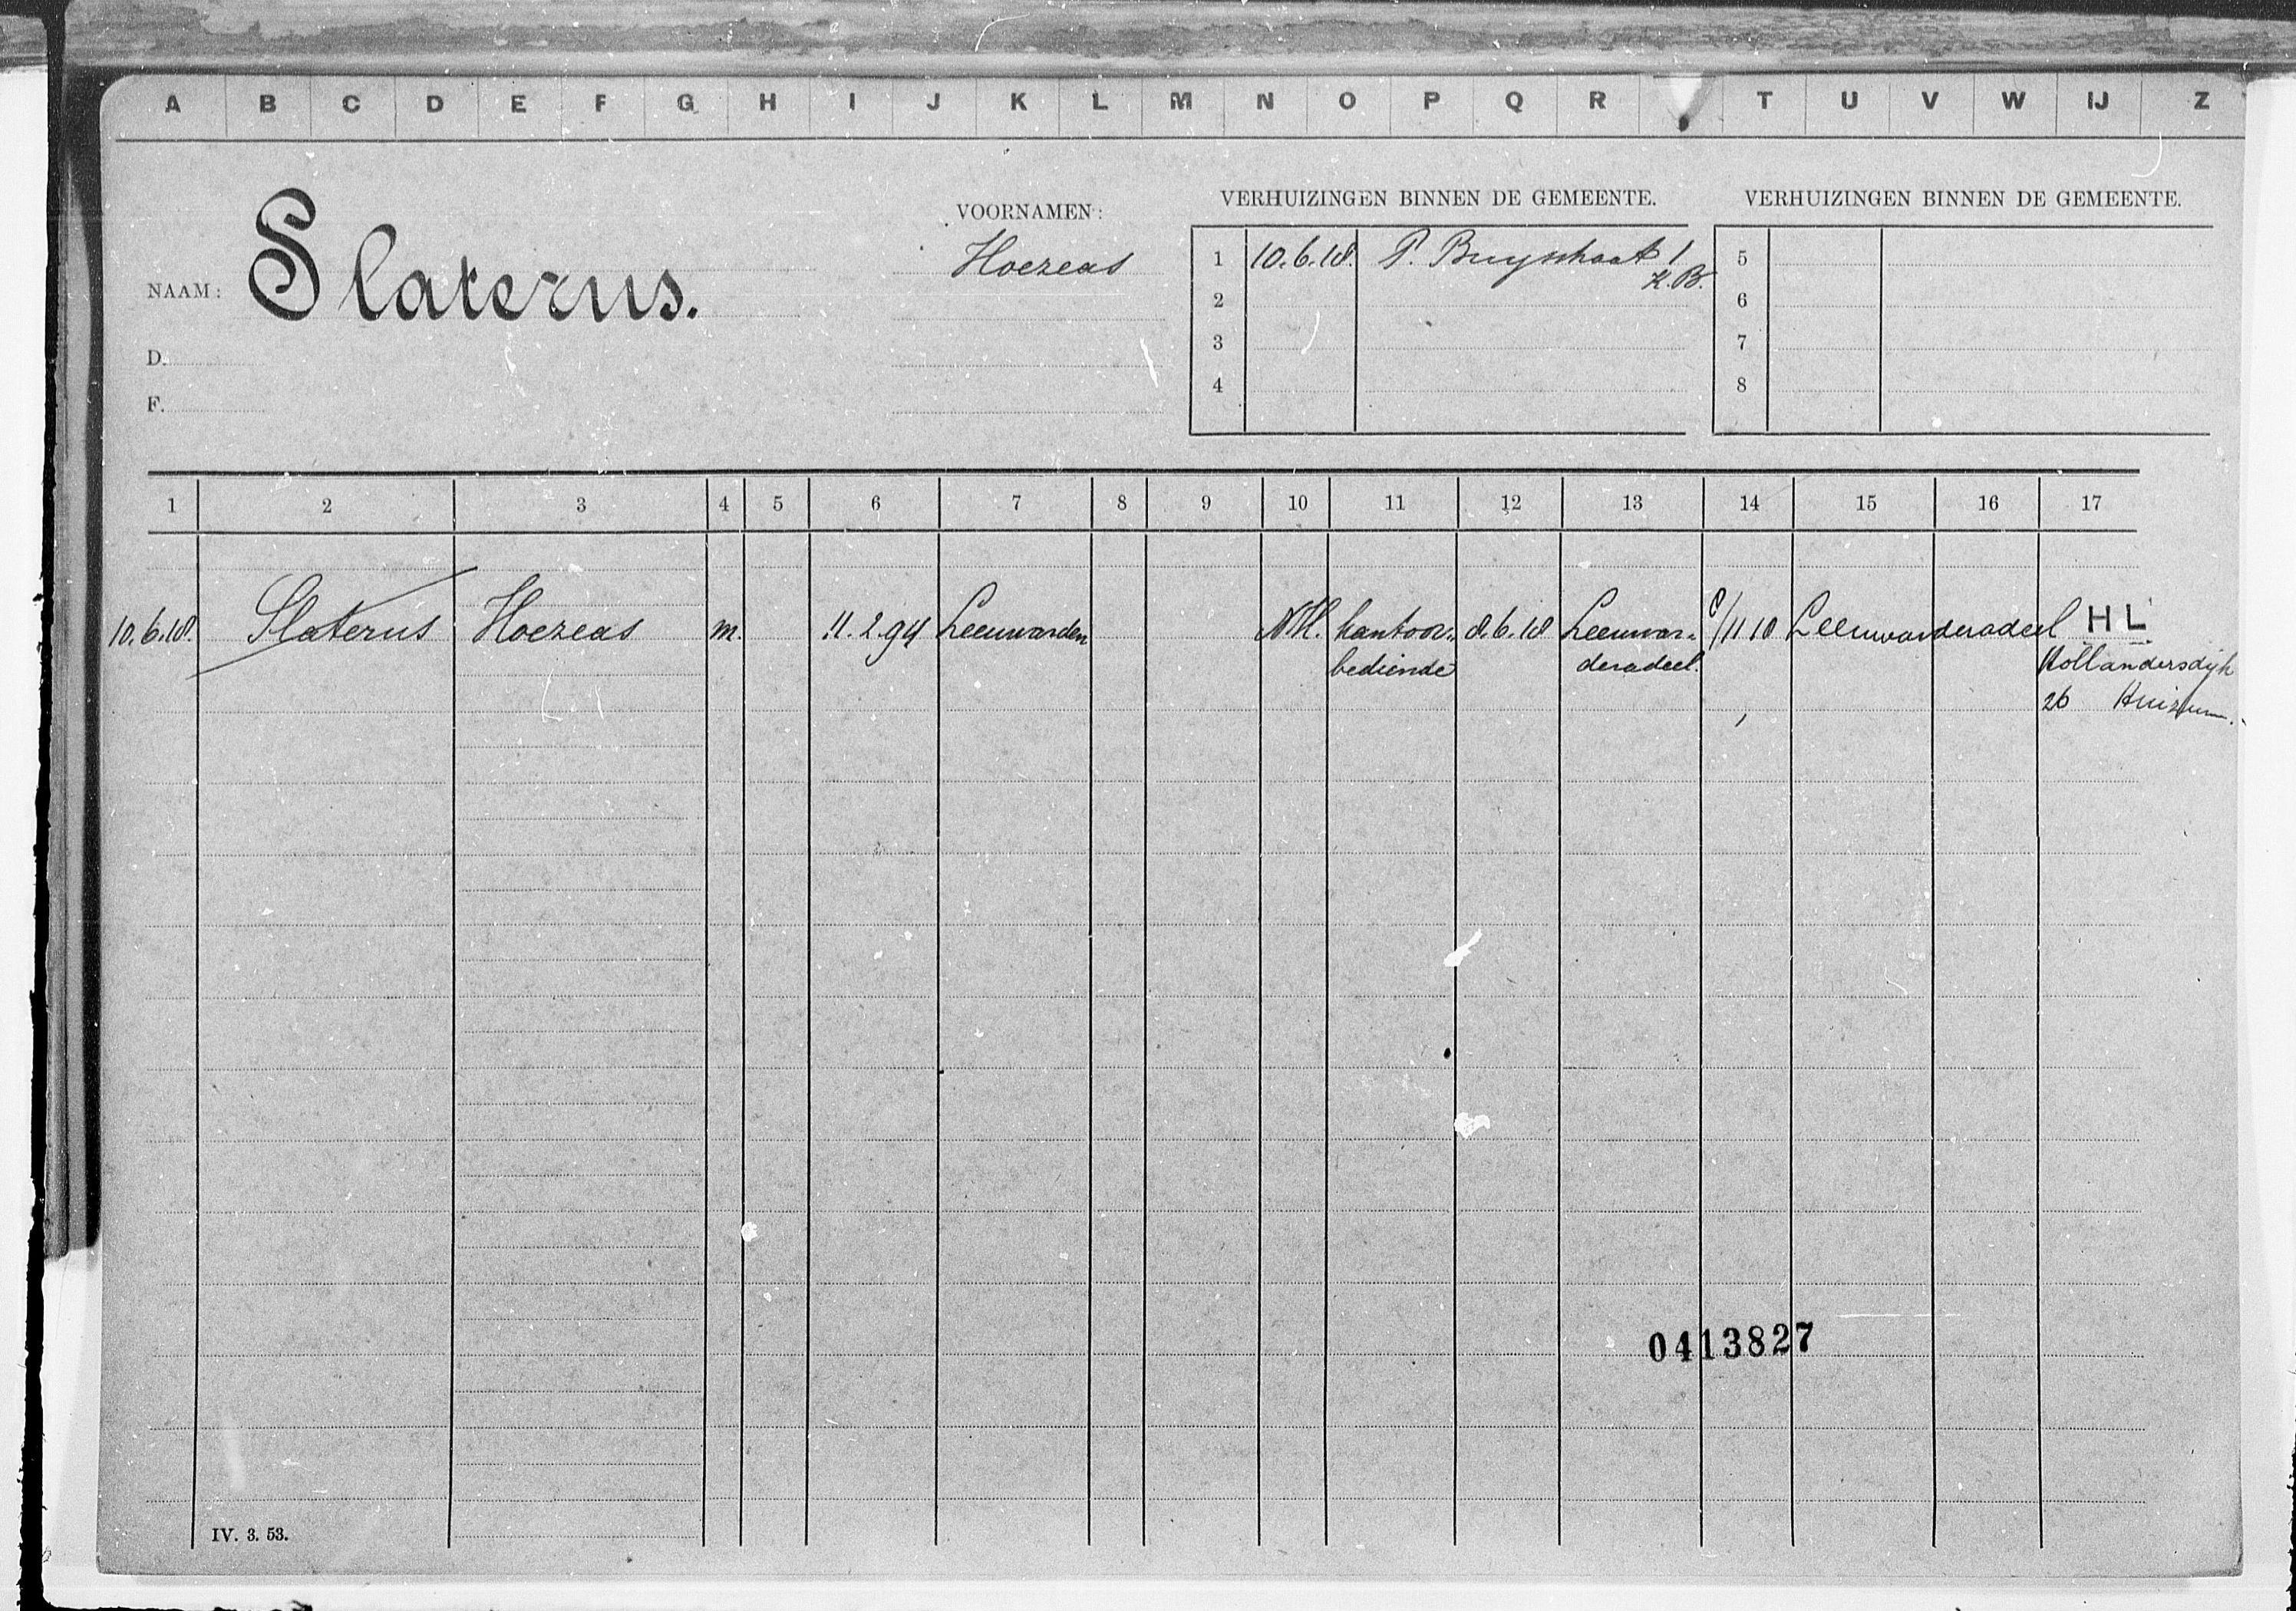 A B C D E F G H I J K L M N O P Q R T U V W IJ Z
NAAM: Slaterus.
D.
F.
VOORNAMEN:
Hoezeas
VERHUIZINGEN BINNEN DE GEMEENTE.
1 10.6.18. P. 1
Z.B.
2
3
4
VERHUIZINGEN BINNEN DE GEMEENTE.
5
6
7
8
1 2 3 4 5 6 7 8 9 10 11 12 13 14 15 16 17
10.6.18. Slaterus Hoezeas m. 11.2.94 Leeuwarden NH. kantoor- 8.6.18 Leeuwar- Leeuwarderadeel HL
bediende deradeel. Hollandersdijk
26 Huizum.
0413827
IV. 3. 53.